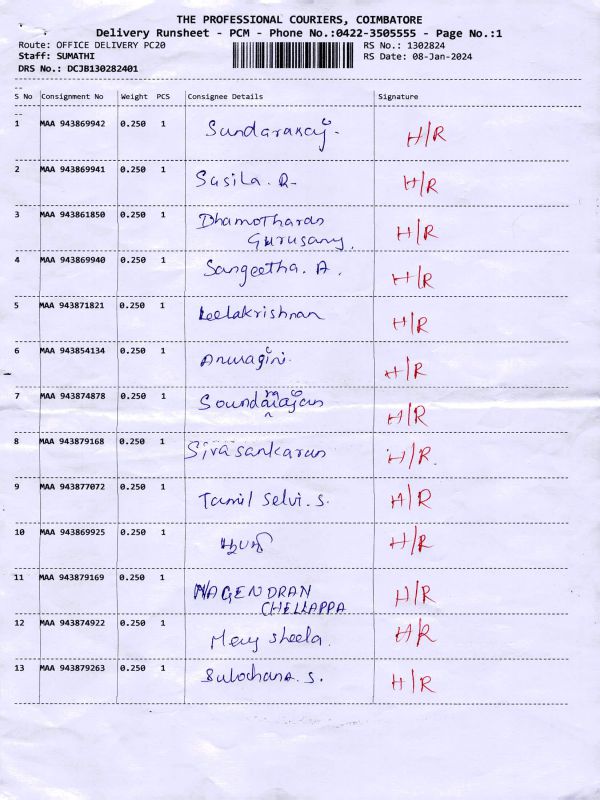 THE PROFESSIONAL COURIERS, COIMBATORE
Delivery Runsheet - PCM - Phone No.:0422-3505555 - Page No.:1
Route: OFFICE DELIVERY PC20 RS No.: 1302824
Staff: SUMATHI RS Date: 08-Jan-2024
DRS No.: DCJB130282401
S No Consignment No Weight PCS Consignee Details Signature
1 MAA 943869942 0.250 1 Sundararaj H/R
2 MAA 943869941 0.250 1 Susila. R H/R
3 MAA 943861850 0.250 1 Dhamotharan H/R
Gurusamy.
4 MAA 943869940 0.250 1 Sangeetha. A. H/R
5 MAA 943871821 0.250 1 Leelakrishnan H/R
6 MAA 943854134 0.250 1 H/R
7 MAA 943874878 0.250 1 Soundararajan H/R
8 MAA 943879168 0.250 1 Sivasankaran H/R.
9 MAA 943877072 0.250 1 Tamil Selvi. S. H/R
10 MAA 943869925 0.250 1 H/R
11 MAA 943879169 0.250 1 NAGENDRAN H/R
CHELLAPPA
12 MAA 943874922 0.250 1 Mary Sheela. H/R
13 MAA 943879263 0.250 1 Sulochana. S. H/R